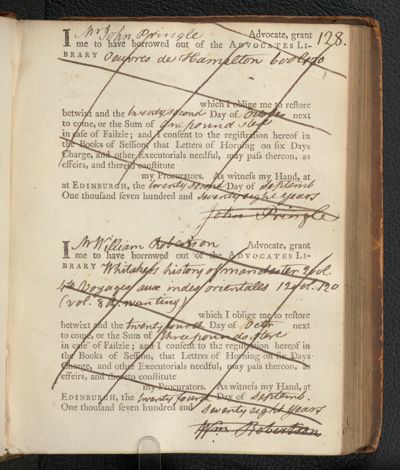 128.
I Mr John Pringle Advocate, grant
me to have borrowed out of the ADVOCATES LI-
BRARY Oeuvres de Hamelton 6 vol. 120
which I oblige me to restore
betwixt and the twenty second Day of October next
to come, or the Sum of one pound sterl
in case of Failzie; and I consent to the registration hereof in
the Books of Session, that Letters of Horning on six Days
Charge, and other Executorials needful, may pass thereon, as
effeirs, and thereto constitute
my Procurators. As witness my Hand, at
at EDINBURGH, the twenty second Day of Septemb
One thousand seven hundred and seventy eight years
John Pringle
I Mr William Robertson Advocate, grant
me to have borrowed out of the ADVOCATES LI-
BRARY Whitakers history of manchester 2 vol.
4to Voyages aux indes orientales 12 vol. 120
(vol. 8th wanting)
which I oblige me to restore
betwixt and the twenty fourth Day of Octr next
to come, or the Sum of three pounds
in case of Failzie; and I consent to the registration hereof in
the Books of Session, that Letters of Horning on six Days
Charge, and other Executorials needful, may pass thereon, as
effeirs, and thereto constitute
my Procurators. As witness my Hand, at
EDINBURGH, the twenty fourth Day of Septemb.
One thousand seven hundred and seventy eight years
Wm Robertson